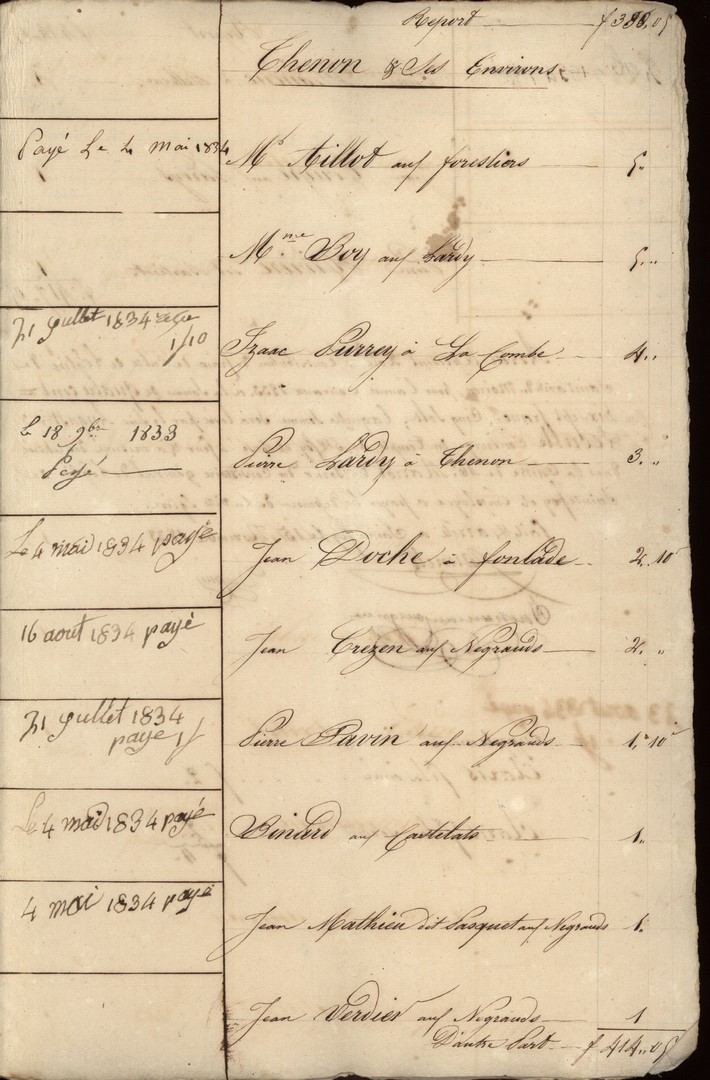 Report — f 388,05
Thenon & Ses Environs
Payé Le 4 mai 1834 Mr Tillot aux forestiers — 5..
Mme Boy aux Lardy — 5..
31 Juillet 1834 reçu
1/10
Izaac Purrey à La Combe — 4..
le 18 9bre 1833
Payé —
Pierre Lardy à Thenon — 3. "
Le 4 mai 1834 payé
Jean Doche à fonlade — 2..10
16 aout 1834 payé
Jean Crezen aux Negrauds — 2. "
31 Juillet 1834
paye 1f
Pierre Pavin aux Negrauds — 1,"10
Le 4 mai 1834 payé
Binard aux Castelats — 1..
4 mai 1834 payé
Jean Mathieu dit Pasquet aux Negrauds 1.
Jean Verdier aux Negrauds — 1
D'autre Part — f 414..05